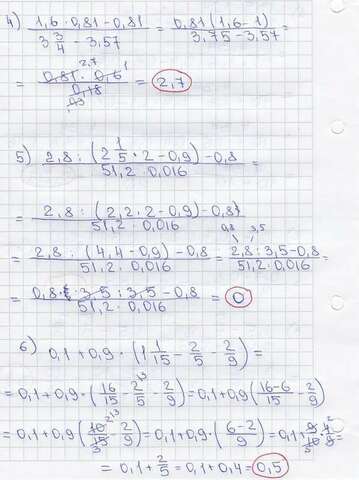 4) (1,6 · 0,81 - 0,81)/(3 3/4 - 3,57) = 0,81(1,6-1)/(3,75-3,57) =
= (0,81 · 0,6)/0,18 = 2,7
5) (2,8 : (2 1/5 · 2 - 0,9) - 0,8)/(51,2 · 0,016) =
= (2,8 : (2,2 · 2 - 0,9) - 0,8)/(51,2 · 0,016) =
= (2,8 : (4,4 - 0,9) - 0,8)/(51,2 · 0,016) = (2,8 : 3,5 - 0,8)/(51,2 · 0,016) =
= (0,8 · 3,5 : 3,5 - 0,8)/(51,2 · 0,016) = 0
6) 0,1 + 0,9 · (1 1/15 - 2/5 - 2/9) =
= 0,1 + 0,9 · (16/15 - 2/5 - 2/9) = 0,1 + 0,9 · ((16-6)/15 - 2/9)
= 0,1 + 0,9 (10/15 - 2/9) = 0,1 + 0,9 · ((6-2)/9) = 0,1 + 9/10 · 4/9 =
= 0,1 + 2/5 = 0,1 + 0,4 = 0,5